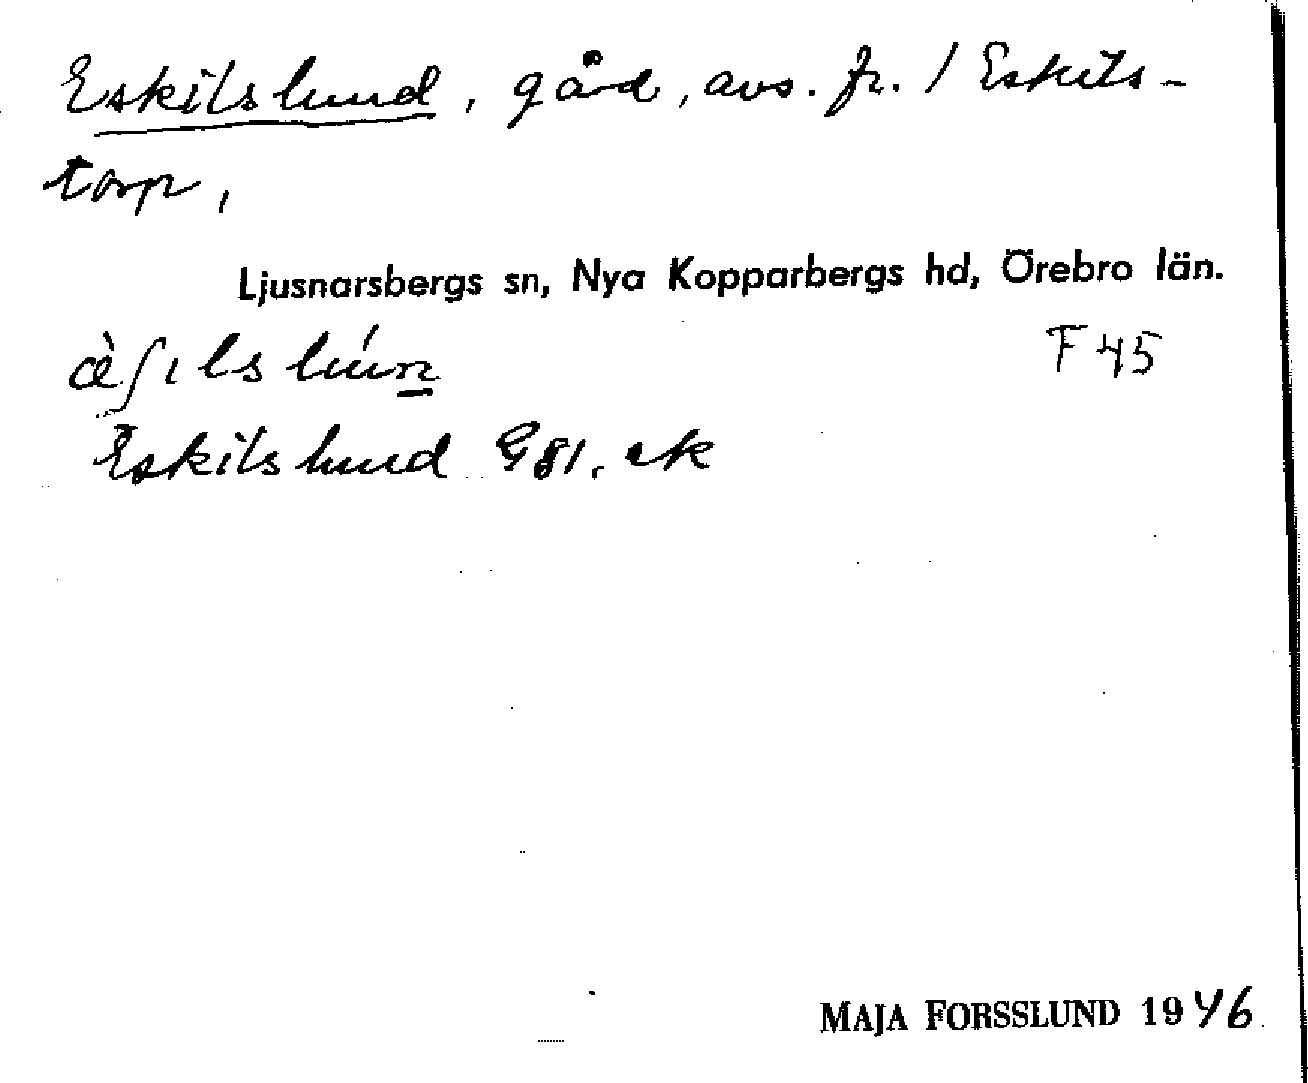 Eskilslund, gård, avs. fr. 1 Eskils-
torp,
Ljusnarsbergs sn, Nya Kopparbergs hd, Örebro län.
æ̀ʃɩls lún̲
F 45
Eskilslund G 81. ek
MAJA FORSSLUND 1946